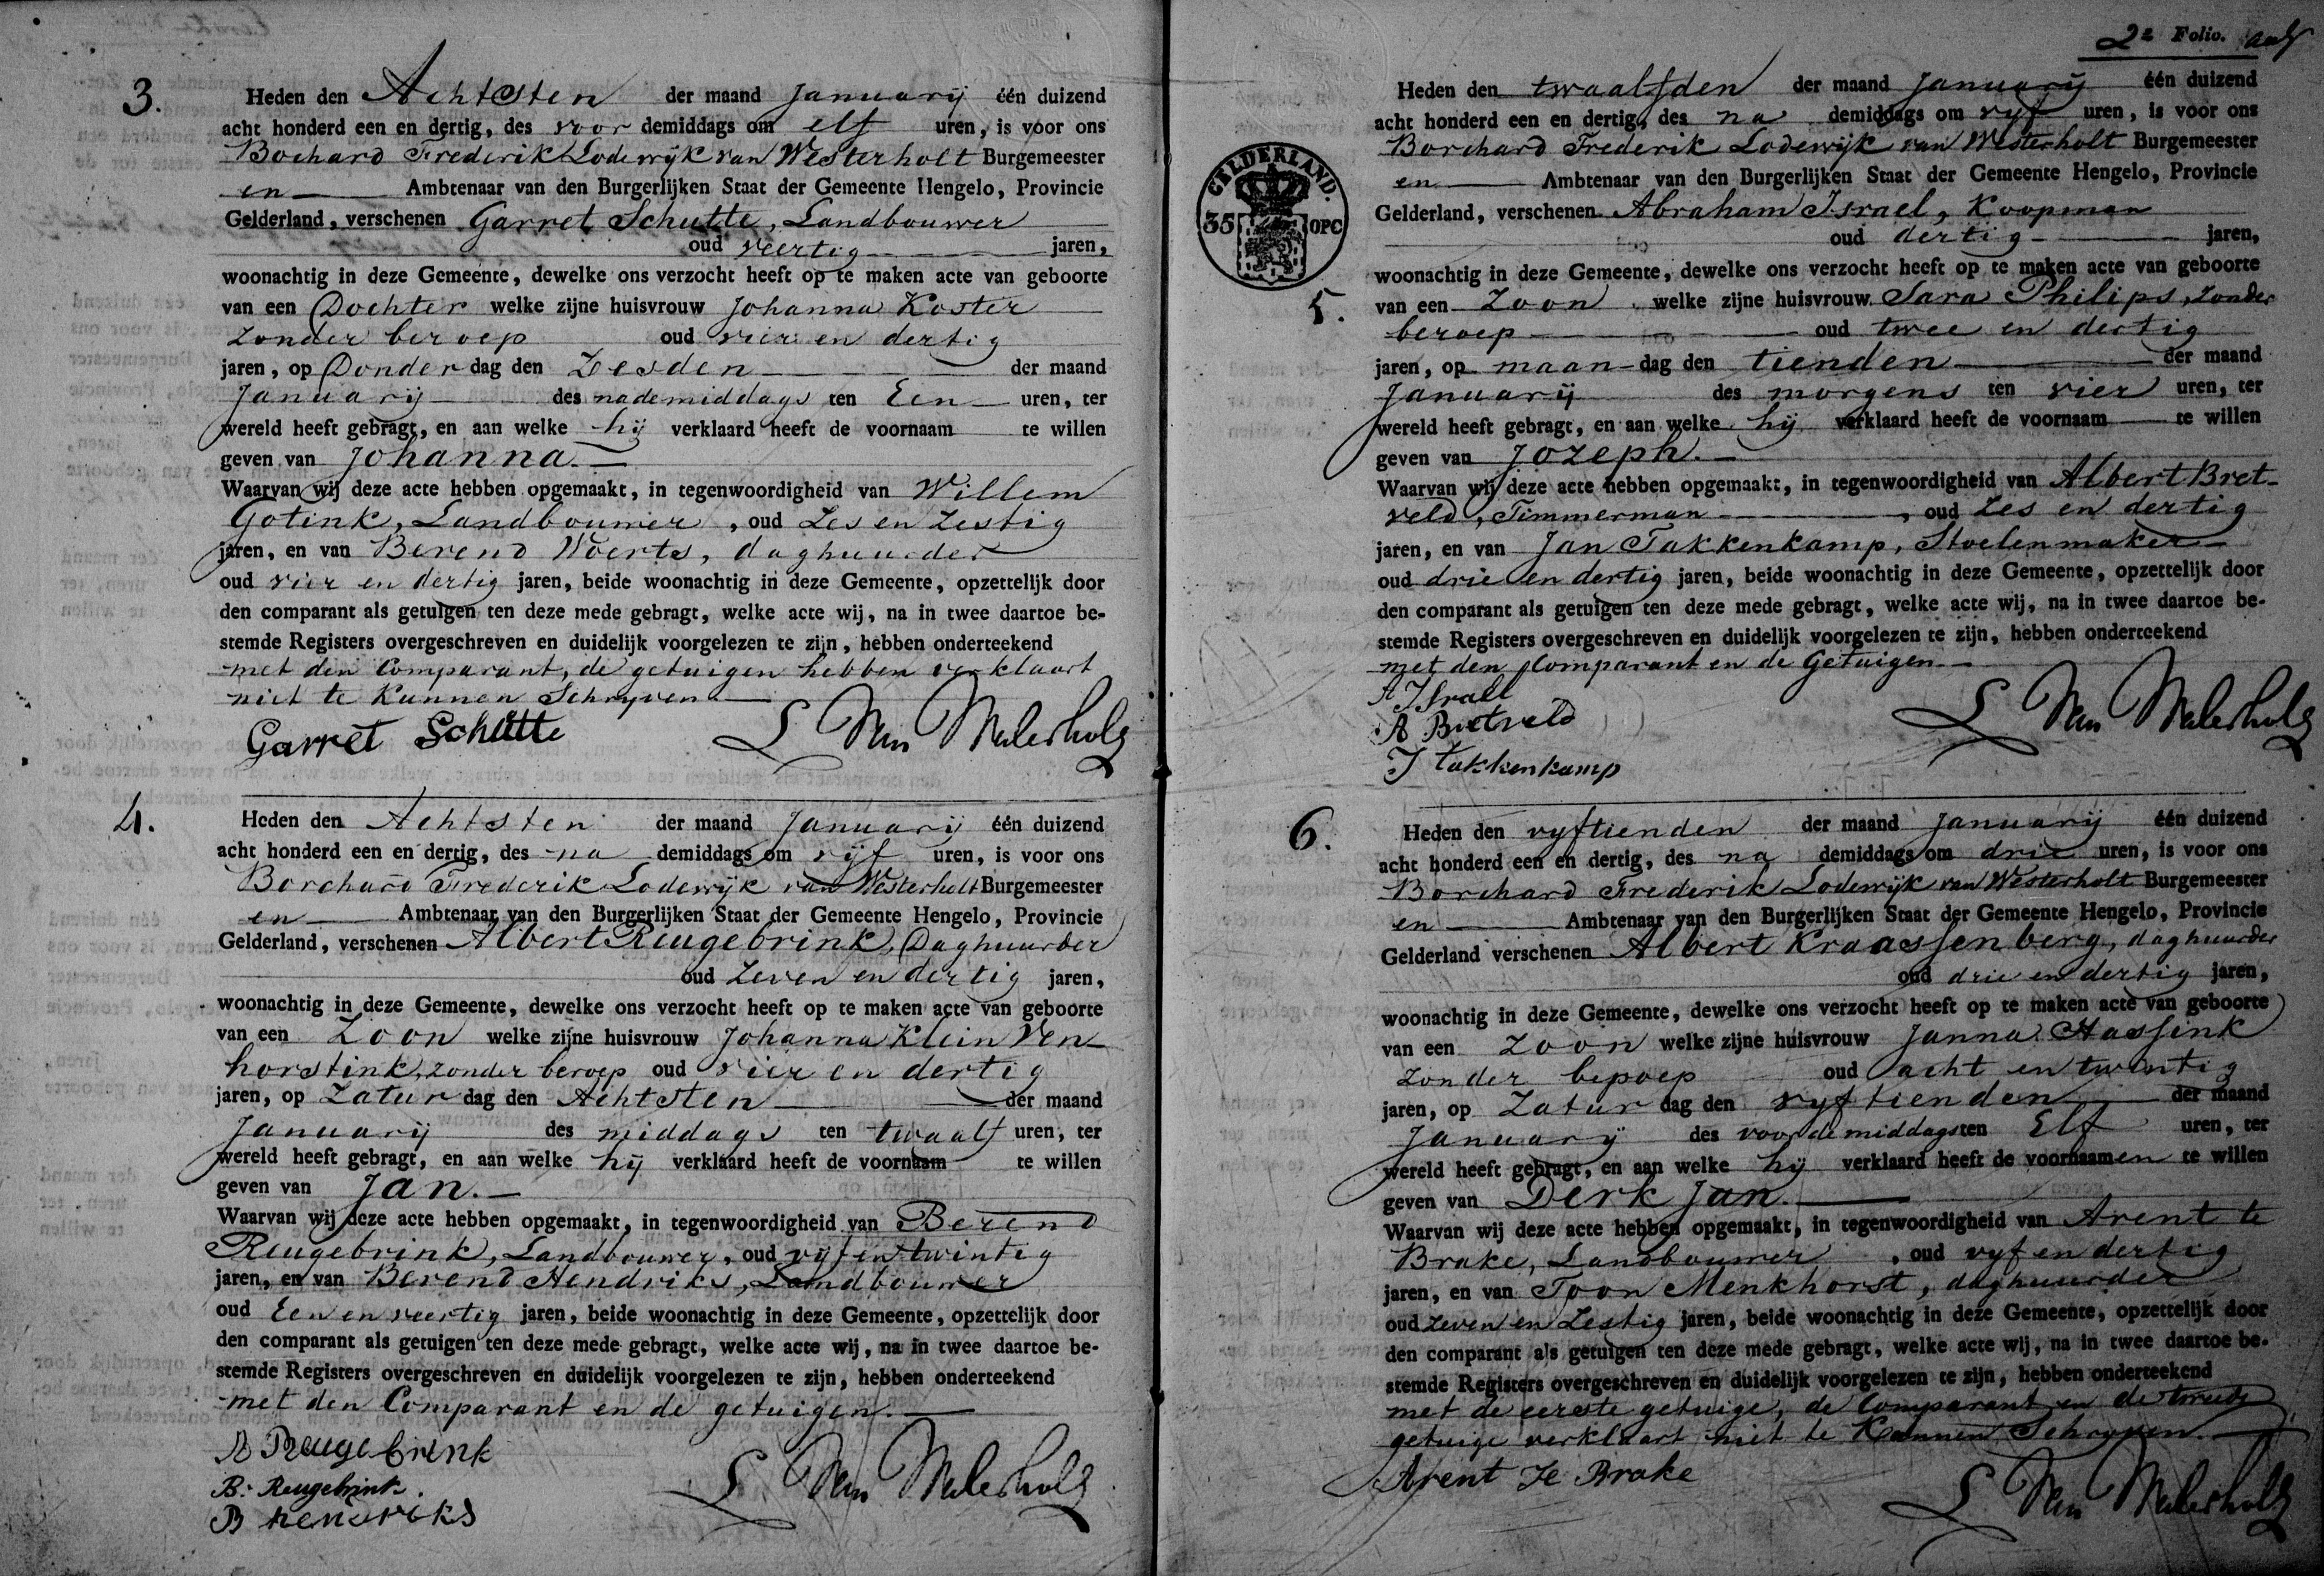 3.
Heden den Achtsten der maand Januarij één duizend
acht honderd een en dertig, des voor demiddags om elf uren, is voor ons
Bochard Frederik Lodewijk van Westerholt Burgemeester
en Ambtenaar van den Burgerlijken Staat der Gemeente Hengelo, Provincie
Gelderland, verschenen Garret Schutte, Landbouwer
oud veertig jaren,
woonachtig in deze Gemeente, dewelke ons verzocht heeft op te maken acte van geboorte
van een Dochter welke zijne huisvrouw Johanna Koster
zonder beroep oud vier en dertig
jaren, op Donder dag den Zesden der maand
Januarij des nademiddags ten Een uren, ter
wereld heeft gebragt, en aan welke hij verklaard heeft de voornaam te willen
geven van Johanna.
Waarvan wij deze acte hebben opgemaakt, in tegenwoordigheid van Willem
Gotink, Landbouwer, oud Zes en Zestig
jaren, en van Berend Woerts, daghuurder
oud vier en dertig jaren, beide woonachtig in deze Gemeente, opzettelijk door
den comparant als getuigen ten deze mede gebragt, welke acte wij, na in twee daartoe be-
stemde Registers overgeschreven en duidelijk voorgelezen te zijn, hebben onderteekend
met den Comparant, de getuigen hebben verklaart
niet te Kunnen Schryven
Garret Schutte L Van Westerholt
4.
Heden den Achtsten der maand Januarij één duizend
acht honderd een en dertig, des na demiddags om vijf uren, is voor ons
Borchard Frederik Lodewijk van Westerholt Burgemeester
en Ambtenaar van den Burgerlijken Staat der Gemeente Hengelo, Provincie
Gelderland, verschenen Albert Reugebrink, Daghuurder
oud Zeven en dertig jaren,
woonachtig in deze Gemeente, dewelke ons verzocht heeft op te maken acte van geboorte
van een Zoon welke zijne huisvrouw Johanna Klein Ven-
horstink, zonder beroep oud vier en dertig
jaren, op Zatur dag den Achtsten der maand
Januarij des middags ten twaalf uren, ter
wereld heeft gebragt, en aan welke hij verklaard heeft de voornaam te willen
geven van Jan.
Waarvan wij deze acte hebben opgemaakt, in tegenwoordigheid van Berend
Reugebrink, Landbouwer, oud vijf en twintig
jaren, en van Berend Hendriks, Landbouwer
oud Een en veertig jaren, beide woonachtig in deze Gemeente, opzettelijk door
den comparant als getuigen ten deze mede gebragt, welke acte wij, na in twee daartoe be-
stemde Registers overgeschreven en duidelijk voorgelezen te zijn, hebben onderteekend
met den Comparant en de getuigen.
A Reugebrink
B. Reugebrink.
B Hendriks L Van Westerholt
2e Folio.
GELDERLAND.
35 OPC
5.
Heden den twaalfden der maand Januarij één duizend
acht honderd een en dertig, des na demiddags om vyf uren, is voor ons
Borchard Frederik Lodewijk van Westerholt Burgemeester
en Ambtenaar van den Burgerlijken Staat der Gemeente Hengelo, Provincie
Gelderland, verschenen Abraham Israel, Koopman
oud dertig jaren,
woonachtig in deze Gemeente, dewelke ons verzocht heeft op te maken acte van geboorte
van een Zoon welke zijne huisvrouw Sara Philips, zonder
beroep oud twee en dertig
jaren, op maan-dag den tienden der maand
Januarij des morgens ten vier uren, ter
wereld heeft gebragt, en aan welke hij verklaard heeft de voornaam te willen
geven van Jozeph.
Waarvan wij deze acte hebben opgemaakt, in tegenwoordigheid van Albert Bret-
veld, Timmerman, oud Zes en dertig
jaren, en van Jan Takkenkamp, Stoelenmaker
oud drie en dertig jaren, beide woonachtig in deze Gemeente, opzettelijk door
den comparant als getuigen ten deze mede gebragt, welke acte wij, na in twee daartoe be-
stemde Registers overgeschreven en duidelijk voorgelezen te zijn, hebben onderteekend
met den Comparant en de Getuigen
A Israel
A Bretveld
J Takkenkamp L Van Westerholt
6.
Heden den vyftienden der maand Januarij één duizend
acht honderd een en dertig, des na demiddags om drie uren, is voor ons
Borchard Frederik Lodewijk van Westerholt Burgemeester
en Ambtenaar van den Burgerlijken Staat der Gemeente Hengelo, Provincie
Gelderland verschenen Albert Kraassenberg, daghuurder
oud drie en dertig jaren,
woonachtig in deze Gemeente, dewelke ons verzocht heeft op te maken acte van geboorte
van een Zoon welke zijne huisvrouw Janna Hassink
zonder bepoep oud acht en twintig
jaren, op Zatur dag den vyftienden der maand
Januarij des voordemiddags ten Elf uren, ter
wereld heeft gebragt, en aan welke hij verklaard heeft de voornaamen te willen
geven van Derk Jan.
Waarvan wij deze acte hebben opgemaakt, in tegenwoordigheid van Arent te
Brake, Landbouwer, oud vyf en dertig
jaren, en van Toon Menkhorst, daghuurder
oud zeven en Zestig jaren, beide woonachtig in deze Gemeente, opzettelijk door
den comparant als getuigen ten deze mede gebragt, welke acte wij, na in twee daartoe be-
stemde Registers overgeschreven en duidelijk voorgelezen te zijn, hebben onderteekend
met de eerste getuige, de Comparant en de tweede
getuige verklaart niet te Kunnen Schryven.
Arent Te Brake L Van Westerholt